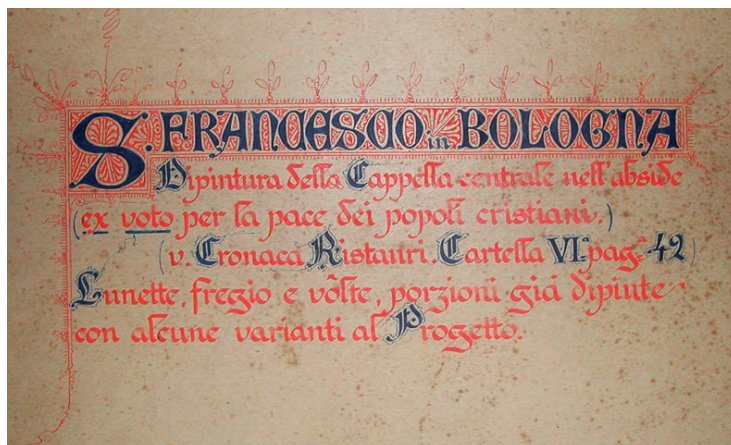 S. FRANCESCO in BOLOGNA
Dipintura della Cappella centrale nell'abside
(ex voto per la pace dei popoli cristiani.)
(v. Cronaca Ristauri. Cartella VI.ª pag.ª 42)
Lunette, fregio e vôlte, porzioni già dipinte
con alcune varianti al Progetto.